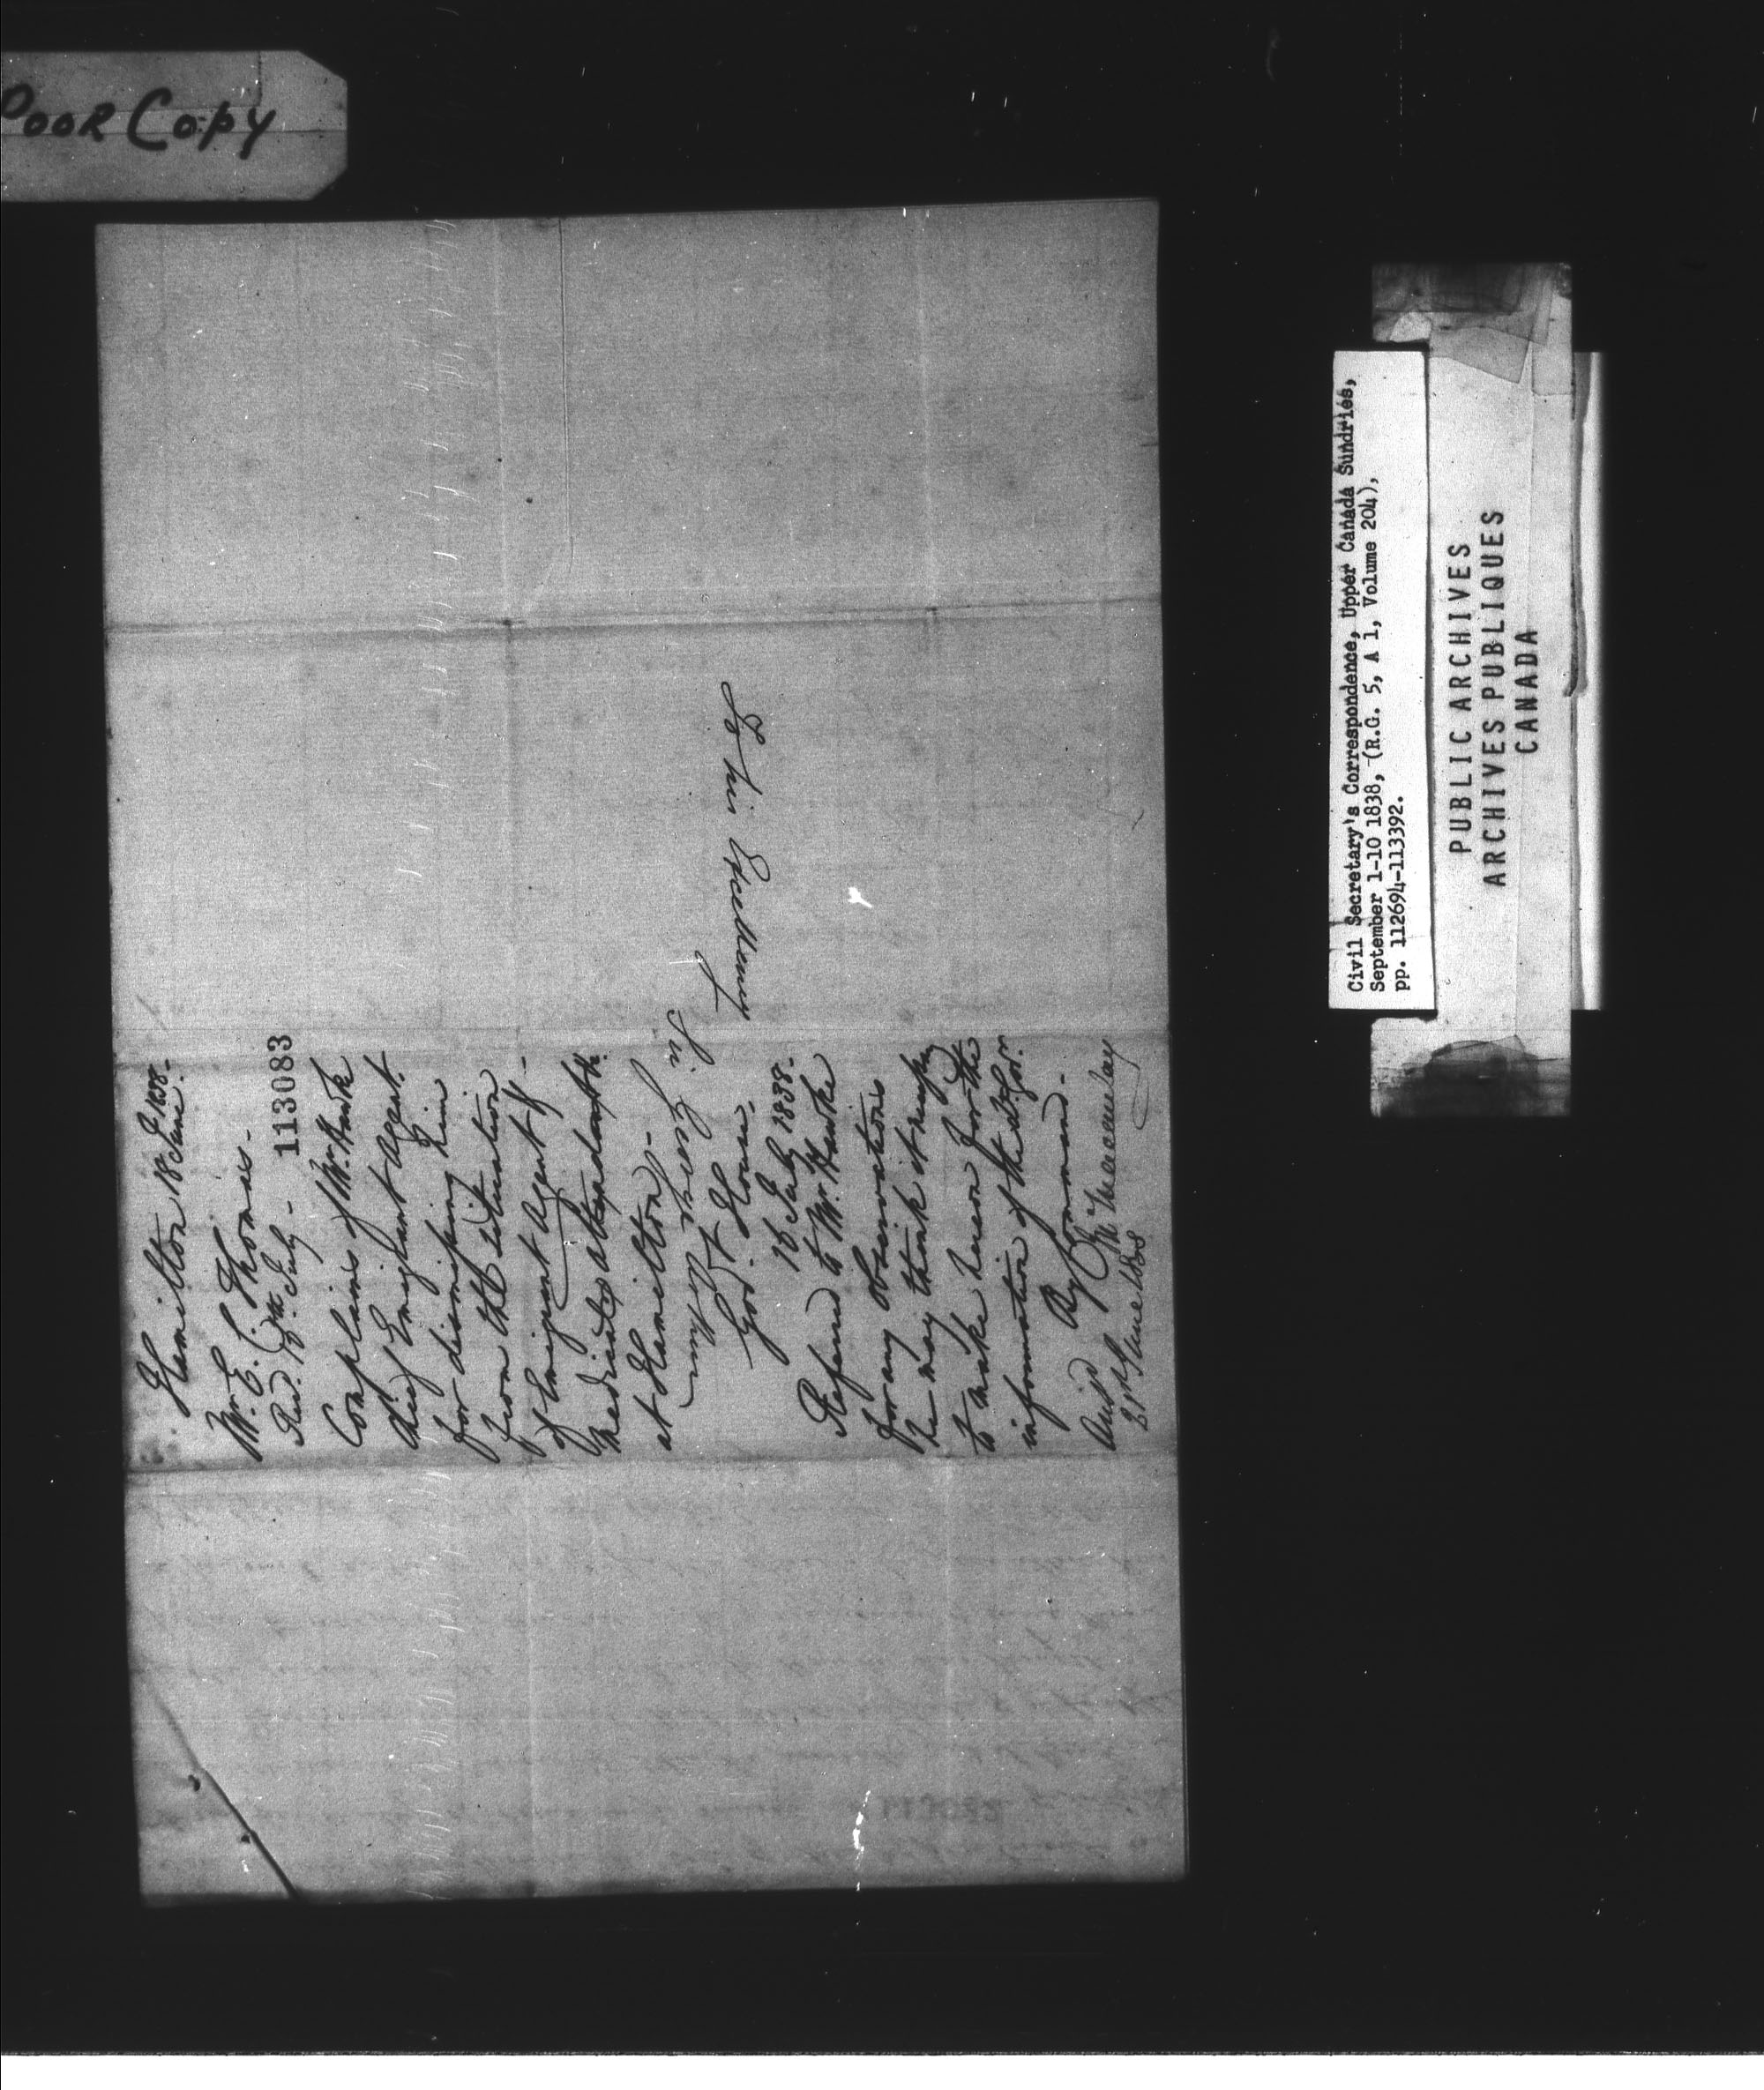 Poor Copy
Hamilton 18 June 1838-
Mr. E. C. Thomas-
Recd. 13th. July-
113083
Complains of Mr. Hawke
Chief Emigrant Agent
for dismissing him
from the situation
of Emigrant Agent &
Medical attendant
at Hamilton-
To his Excellency
Sir George Arthur
Govt. House
16 July 1838-
Referred to Mr. Hawke
for any observations
he may think it necessary
to make hereon for the
information of the Lt. Govr.
By Command-
Macaulay
June 1838
Civil Secretary's Correspondence, Upper Canada Sundries,
September 1-10 1838, (R.G. 5, A 1, Volume 204),
pp. 112694-113392.
PUBLIC ARCHIVES
ARCHIVES PUBLIQUES
CANADA